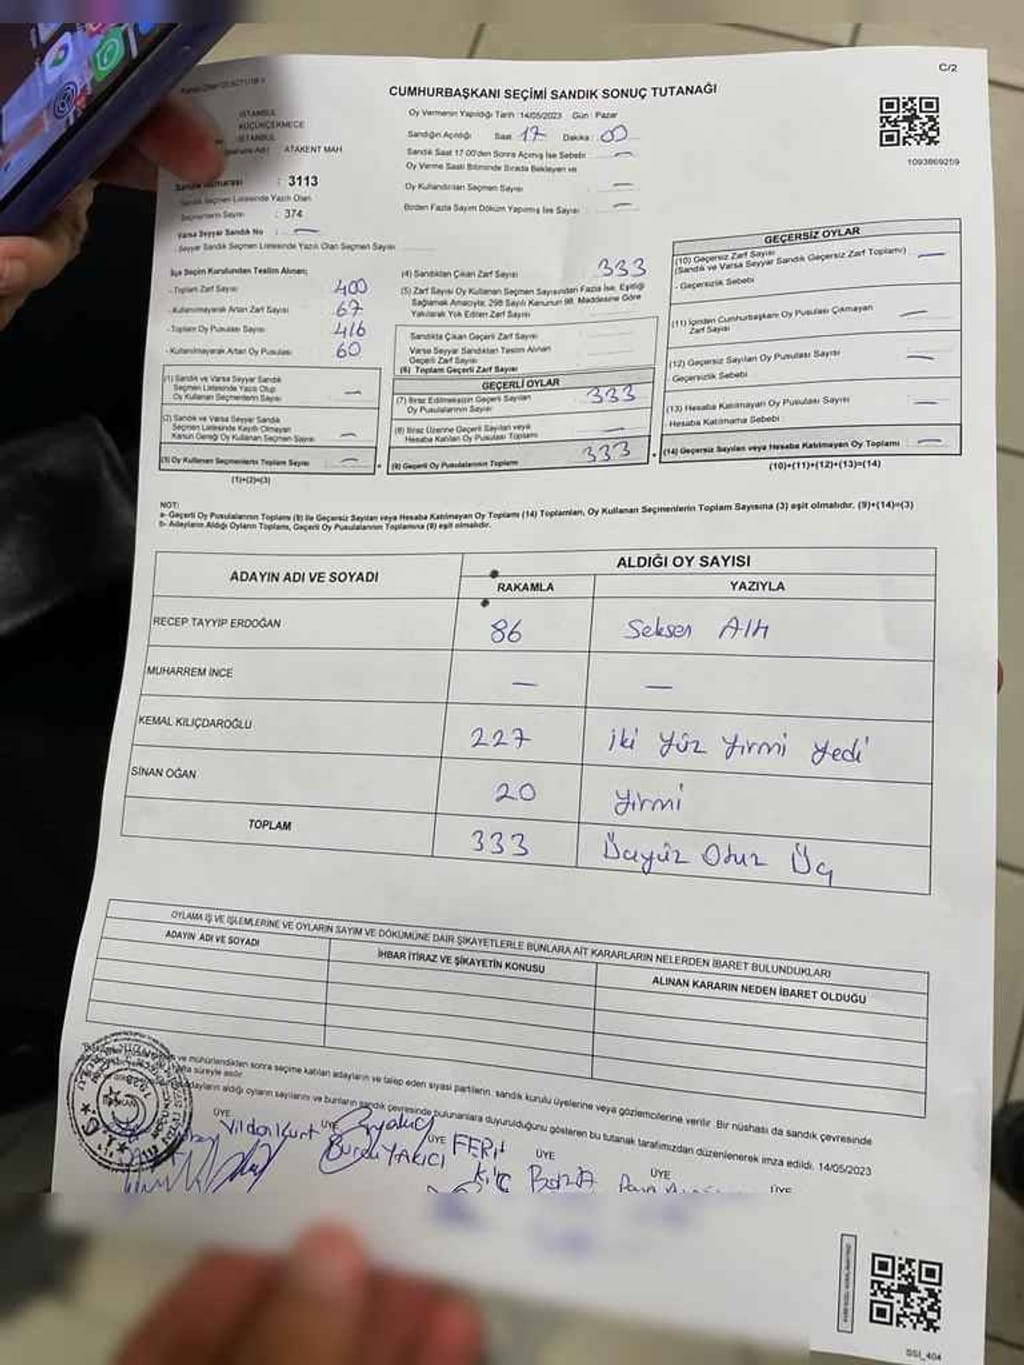 C/2
CUMHURBAŞKANI SEÇİMİ SANDIK SONUÇ TUTANAĞI
1093869259
İSTANBUL
KÜÇÜKÇEKMECE
İSTANBUL
ATAKENT MAH
: 3113
Sandık Seçmen Listesinde Yazılı Olan
Seçmenlerin Sayısı : 374
Varsa Seyyar Sandık No : —
- Seyyar Sandık Seçmen Listesinde Yazılı Olan Seçmen Sayısı
Oy Vermenin Yapıldığı Tarih :14/05/2023 Gün : Pazar
Sandığın Açıldığı Saat : 17 Dakika : 00
Sandık Saat 17:00'den Sonra Açılmış İse Sebebi : —
Oy Verme Saati Bitiminde Sırada Bekleyen ve
Oy Kullandırılan Seçmen Sayısı : —
Birden Fazla Sayım Döküm Yapılmış İse Sayısı : —
İlçe Seçim Kurulundan Teslim Alınan;
- Toplam Zarf Sayısı : 400
- Kullanılmayarak Artan Zarf Sayısı : 67
- Toplam Oy Pusulası Sayısı : 416
- Kullanılmayarak Artan Oy Pusulası : 60
(1) Sandık ve Varsa Seyyar Sandık
Seçmen Listesinde Yazılı Olup
Oy Kullanan Seçmenlerin Sayısı : —
(2) Sandık ve Varsa Seyyar Sandık
Seçmen Listesinde Kayıtlı Olmayan
Kanun Gereği Oy Kullanan Seçmen Sayısı : —
(3) Oy Kullanan Seçmenlerin Toplam Sayısı : —
(1)+(2)=(3)
(4) Sandıktan Çıkan Zarf Sayısı : 333
(5) Zarf Sayısı Oy Kullanan Seçmen Sayısından Fazla İse, Eşitliği
Sağlamak Amacıyla, 298 Sayılı Kanunun 98. Maddesine Göre
Yakılarak Yok Edilen Zarf Sayısı :
Sandıkta Çıkan Geçerli Zarf Sayısı :
Varsa Seyyar Sandıktan Teslim Alınan
Geçerli Zarf Sayısı :
(6) Toplam Geçerli Zarf Sayısı
GEÇERLİ OYLAR
(7) İtiraz Edilmeksizin Geçerli Sayılan
Oy Pusulalarının Sayısı : 333
(8) İtiraz Üzerine Geçerli Sayılan veya
Hesaba Katılan Oy Pusulası Toplamı : —
(9) Geçerli Oy Pusulalarının Toplamı : 333
GEÇERSİZ OYLAR
(10) Geçersiz Zarf Sayısı
(Sandık ve Varsa Seyyar Sandık Geçersiz Zarf Toplamı) : —
- Geçersizlik Sebebi
(11) İçinden Cumhurbaşkanı Oy Pusulası Çıkmayan
Zarf Sayısı : —
(12) Geçersiz Sayılan Oy Pusulası Sayısı : —
Geçersizlik Sebebi
(13) Hesaba Katılmayan Oy Pusulası Sayısı : —
- Hesaba Katılmama Sebebi :
(14) Geçersiz Sayılan veya Hesaba Katılmayan Oy Toplamı : —
(10)+(11)+(12)+(13)=(14)
NOT:
a- Geçerli Oy Pusulalarının Toplamı (9) ile Geçersiz Sayılan veya Hesaba Katılmayan Oy Toplamı (14) Toplamları, Oy Kullanan Seçmenlerin Toplam Sayısına (3) eşit olmalıdır. (9)+(14)=(3)
b- Adayların Aldığı Oyların Toplamı, Geçerli Oy Pusulalarının Toplamına (9) eşit olmalıdır.
ADAYIN ADI VE SOYADI
ALDIĞI OY SAYISI
RAKAMLA YAZIYLA
RECEP TAYYİP ERDOĞAN 86 Seksen Altı
MUHARREM İNCE — —
KEMAL KILIÇDAROĞLU 227 iki yüz yirmi yedi
SİNAN OĞAN 20 yirmi
TOPLAM 333 Üçyüz Otuz Üç
OYLAMA İŞ VE İŞLEMLERİNE VE OYLARIN SAYIM VE DÖKÜMÜNE DAİR ŞİKAYETLERLE BUNLARA AİT KARARLARIN NELERDEN İBARET BULUNDUKLARI
ADAYIN ADI VE SOYADI
İHBAR İTİRAZ VE ŞİKAYETİN KONUSU
ALINAN KARARIN NEDEN İBARET OLDUĞU
ve mühürlendikten sonra seçime katılan adayların ve talep eden siyasi partilerin, sandık kurulu üyelerine veya gözlemcilerine verilir. Bir nüshası da sandık çevresinde
süreyle asılır.
adayların aldığı oyların sayılarını ve bunların sandık çevresinde bulunanlara duyurulduğunu gösteren bu tutanak tarafımızdan düzenlenerek imza edildi. 14/05/2023
ÜYE ÜYE ÜYE ÜYE ÜYE ÜYE
Vildan Kurt
Burcu YAKICI
FERİT
KILIÇ
SSI_404